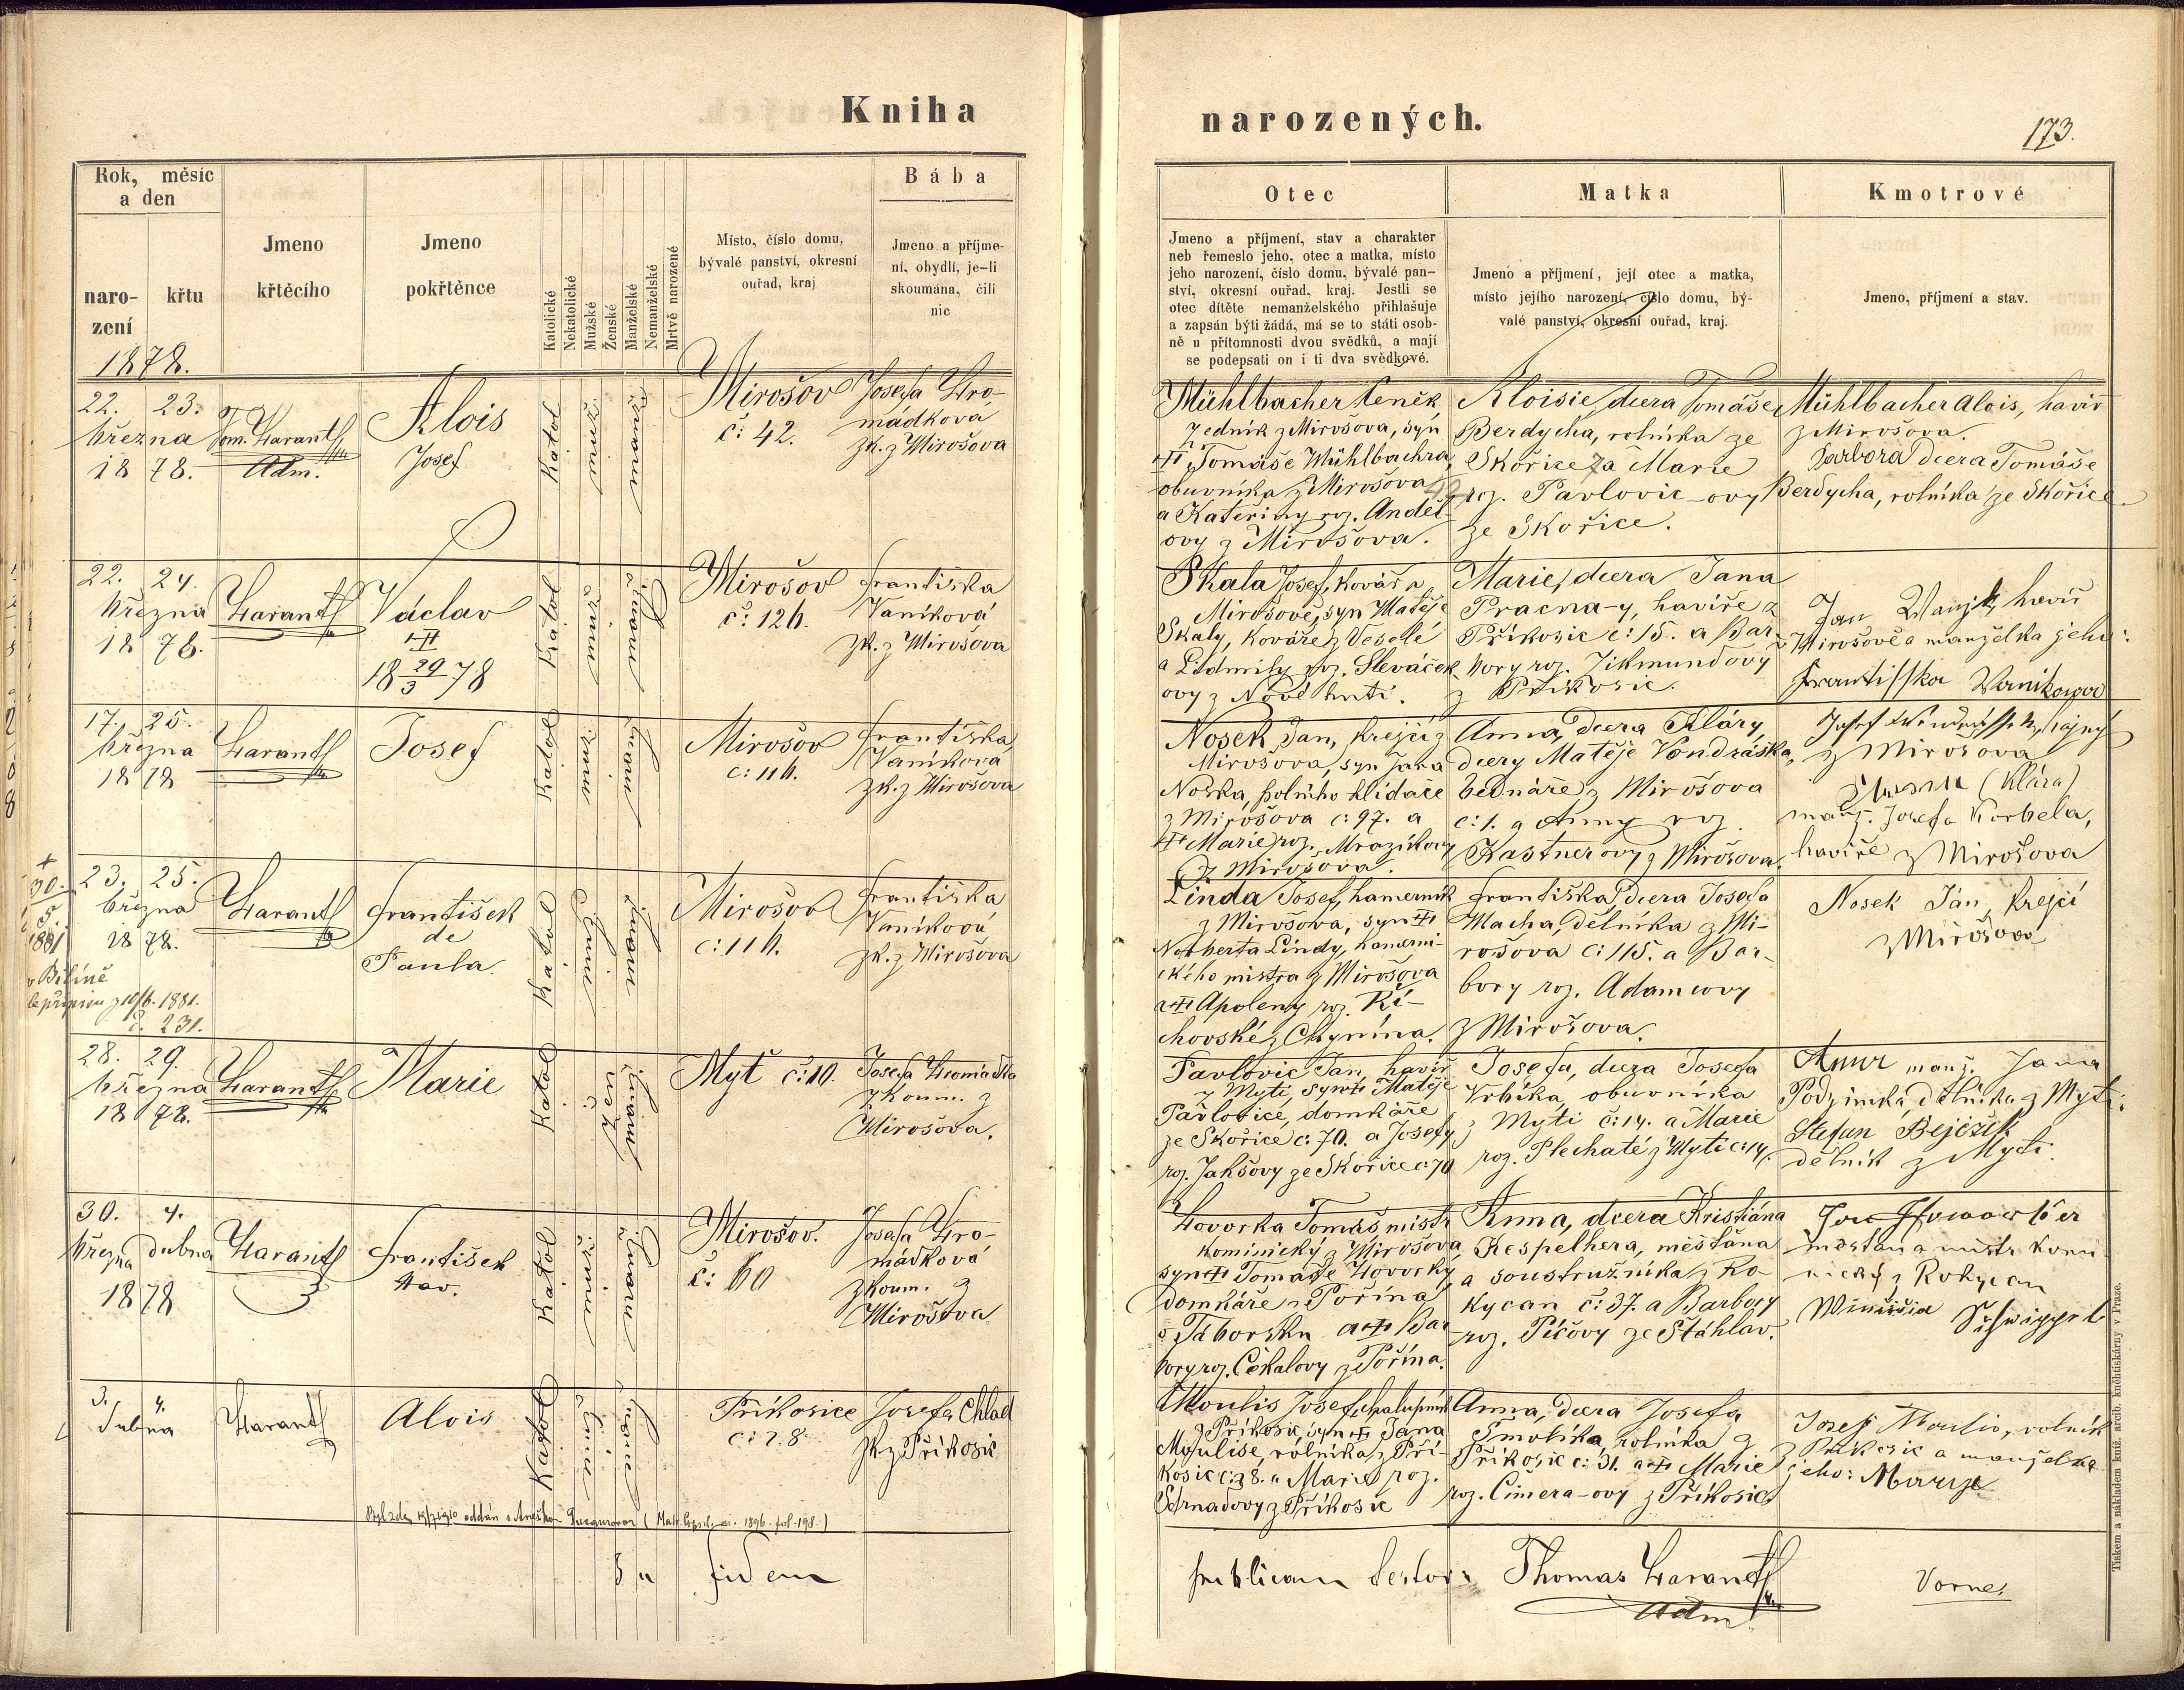 Kniha
Rok, měsíc
a den
naro-
zení
křtu
Jmeno
křtěcího
Jmeno
pokřtěnce
Katolické
Nekatolické
Mužské
Ženské
Manželské
Nemanželské
Mrtvě narozené
Místo, číslo domu,
bývalé panství, okresní
ouřad, kraj
Bába
Jmeno a příjme-
ní, obydlí, je-li
skoumána, čili
nic
1878.
22. 23.
března
1878.
Tom. Harant
Adm.
Alois
Josef
Katol
Mirošov
č: 42.
Josefa Hro-
mádková
zk. z Mirošova
22. 24.
března
1878.
Harant
Václav
18 29/3 78
Katol
Mirošov
č: 126.
Františka
Vaníková
zk. z Mirošova
17. 25.
března
1878
Harant
Josef
Katol
Mirošov
č: 116.
Františka
Vaníková
zk. z Mirošova
+
30.
5.
1881
v Bílině
z 10/6. 1881.
č. 231.
23. 25.
března
1878.
Harant
František
de
Paula.
Katol
Mirošov
č: 116.
Františka
Vaníková
zk. z Mirošova
28. 29.
března
1878.
Harant
Marie
Katol
Mýť č: 10.
Josefa Hromádka
zkoum. z
Mirošova.
30. 4.
března dubna
1878
Harant
František
Xav.
Katol
Mirošov.
č: 60
Josefa Hro-
mádková
zkoum. z
Mirošova
3. 4.
dubna
Harant
Alois
Katol
Příkosice
č: 28
Josefa Chlad
zk z Příkosic
1896. fol. 198.)
fidem
narozených.
173.
Otec
Jmeno a příjmení, stav a charakter
neb řemeslo jeho, otec a matka, místo
jeho narození, číslo domu, bývalé pan-
ství, okresní ouřad, kraj. Jestli se
otec dítěte nemanželského přihlašuje
a zapsán býti žádá, má se to státi osob-
ně u přítomnosti dvou svědků, a mají
se podepsati on i ti dva svědkové.
Matka
Jmeno a příjmení, její otec a matka,
místo jejího narození, číslo domu, bý-
valé panství, okresní ouřad, kraj.
Kmotrové
Jmeno, příjmení a stav.
Mühlbacher Čeněk,
zedník z Mirošova, syn
Tomáše Mühlbachra,
obuvníka z Mirošova
a Kateřiny roz. Anděl-
ovy z Mirošova.
Aloisie, dcera Tomáše
Berdycha, rolníka ze
Skořice a Marie
roz. Pavlovic-ovy
ze Skořice.
Mühlbacher Alois, havíř
z Mirošova.
Barbora dcera Tomáše
Berdycha, rolníka ze Skořice
Skala Josef, kovář v
Mirošově, syn Matěje
Skaly, kováře z Veselé
a Lidmily roz. Sleváček
ovy z Nové huti.
Marie, dcera Jana
Pracna-y, havíře z
Příkosic č: 15. a Bar-
bory roz. Zikmundovy
z Příkosic.
Jan Wanjk, havíř
v Mirošově a manželka jeho:
Frantisska Wanikowa
Nosek Jan, krejčí z
Mirošova, syn Jana
Noska, polního hlídače
z Mirošova č: 97. a
Marie roz. Mrazíkovy
z Mirošova.
Anna, dcera Kláry,
dcery Matěje Vondráška,
bednáře z Mirošova
č: 1. a Anny roz.
Kastnerovy z Mirošova.
z Mirošova
(Klára)
manž. Josefa Korbela,
havíře z Mirošova
Linda Josef, hamerník
z Mirošova, syn
Norberta Lindy, hamerni-
ckého mistra z Mirošova
a Apoleny roz. Ři-
hovské z Chynína.
Františka, dcera Josefa
Macha, dělníka z Mi-
rošova č: 115. a Bar-
bory roz. Adamcovy
z Mirošova.
Nosek Ján, krejčí
z Mirošova
Pavlovic Jan, havíř
z Mýti, syn Matěje
Pavlovice, domkáře
ze Skořice č: 70. a Josefy
roz. Jakšovy ze Skořice č: 70
Josefa, dcera Josefa
Vrbíka, obuvníka
z Mýti č: 14. a Marie
roz. Plechaté z Mýti č: 14.
Anna manž. Jana
Podzimka, dělníka z Mýti:
Stefan Bejček
dělník z Mýti.
Hovorka Tomáš, mistr
kominický z Mirošova
syn Tomáše Hovorky,
domkáře z Pořína
v Táborsku a Bar
bory roz. Čekalovy z Pořína.
Anna, dcera Kristiána
Kespelhera, měšťana
a soustružníka z Ro-
kycan č: 37. a Barbory
roz. Píčovy ze Štáhlav.
měšťan a mistr komi
nický z Rokycan
Moulis Josef, chalupník
z Příkosic, syn Jana
Moulise, rolníka z Pří-
kosic č: 28. a Marie roz.
z Příkosic
Anna, dcera Josefa
Smolíka, rolníka z
Příkosic č: 31. a Marie
roz. Čimera-ovy z Příkosic.
Josef Moulis, rolník
z Příkosic a manželka
jeho: Marie
publicam testor:
Thomas Harant
Adm
Vorne
Tiskem a nákladem kníž. arcib. knihtiskárny v Praze.